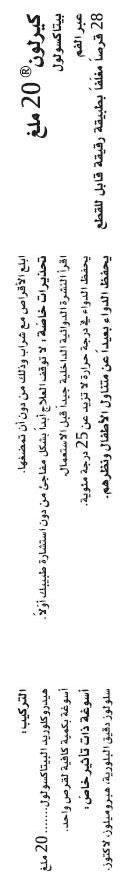 كيرلون® 20 ملغ
بيتاكسولول
عبر الفم
28 قرصاً مغلفاً بطبقة رقيقة قابل للقطع
ابلع الأقراص مع شراب وذلك من دون أن تمضغها.
تحذيرات خاصة: لا توقف العلاج أبداً بشكل مفاجئ من دون استشارة طبيبك أولاً.
اقرأ النشرة الدوائية الداخلية جيداً قبل الاستعمال.
يحفظ الدواء في درجة حرارة لا تزيد عن 25 درجة مئوية.
يحفظ الدواء بعيداً عن متناول الأطفال ونظرهم.
التركيب:
هيدروكلوريد البيتاكسولول........ 20 ملغ
أسوغة بكمية كافية لقرص واحد.
أسوغة ذات تأثير خاص:
سلولوز دقيق البلورية، هبروميلوز، لاكتوز.